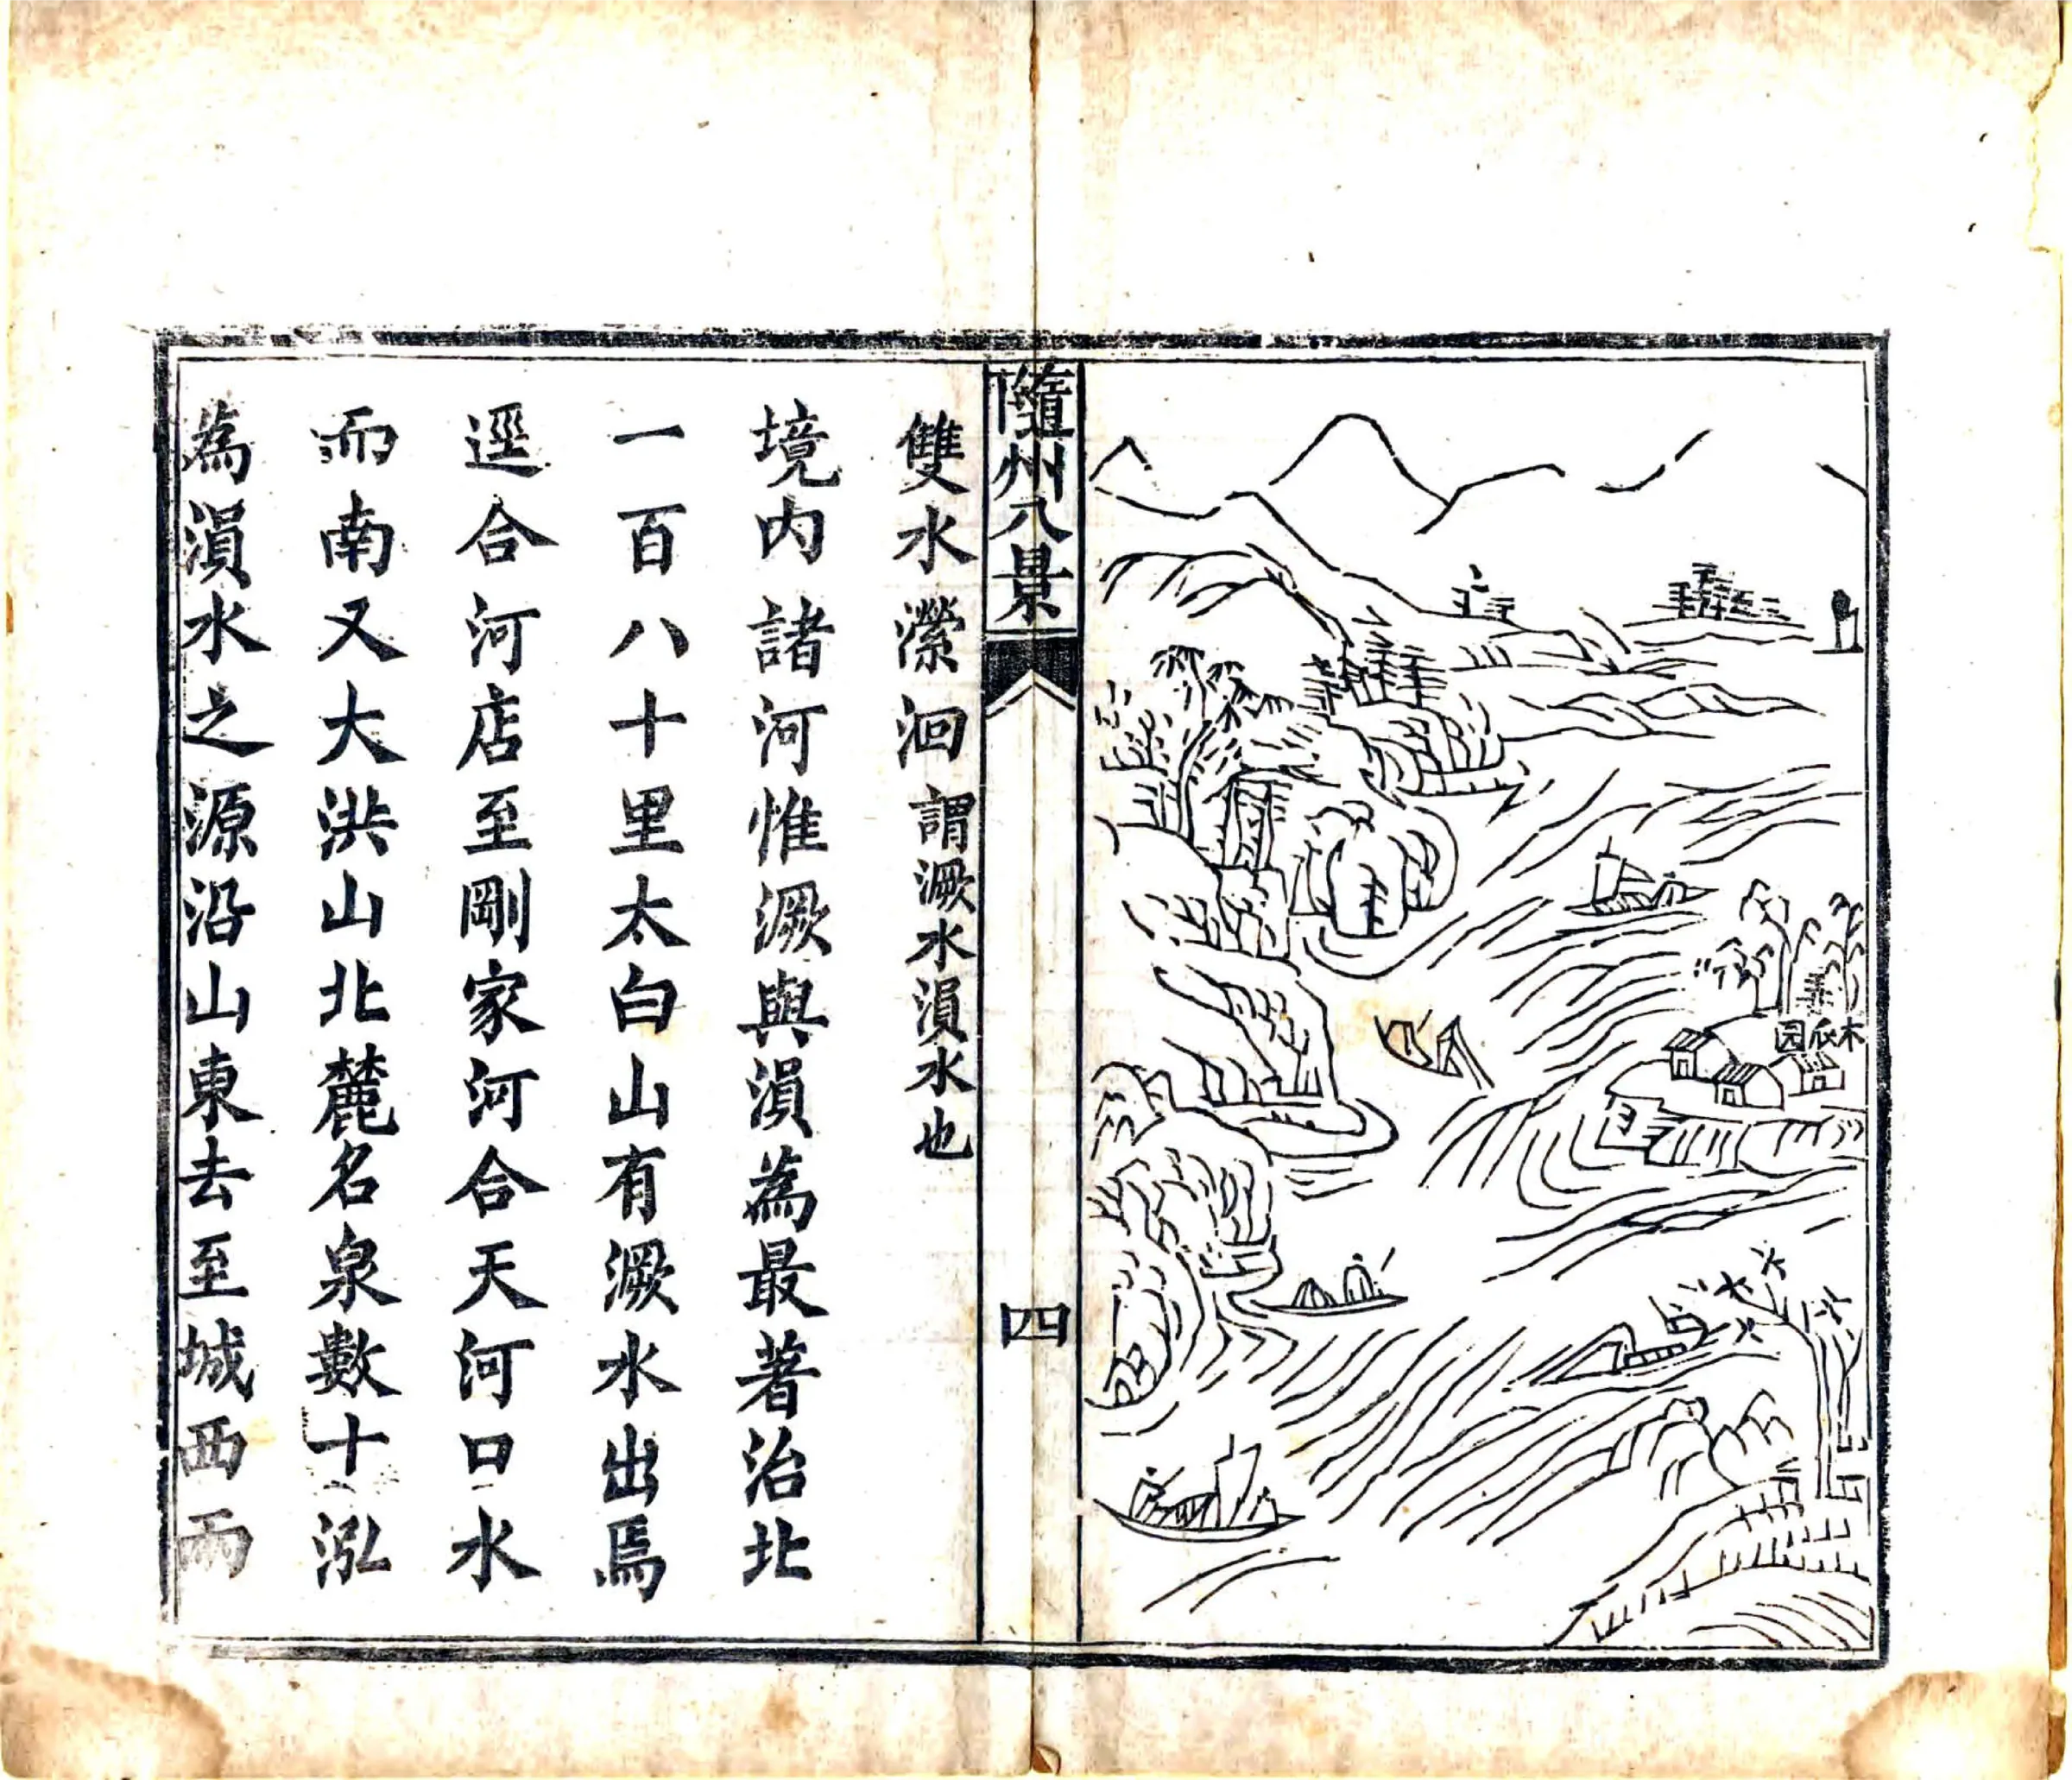 木瓜园
隨州八景
四
雙水瀠洄 謂㵐水溳水也
境内諸河惟㵐與溳為最著治北
一百八十里太白山有㵐水出焉
逕合河店至剛家河合天河口水
而南又大洪山北麓名泉數十泓
為溳水之源沿山東去至城西兩